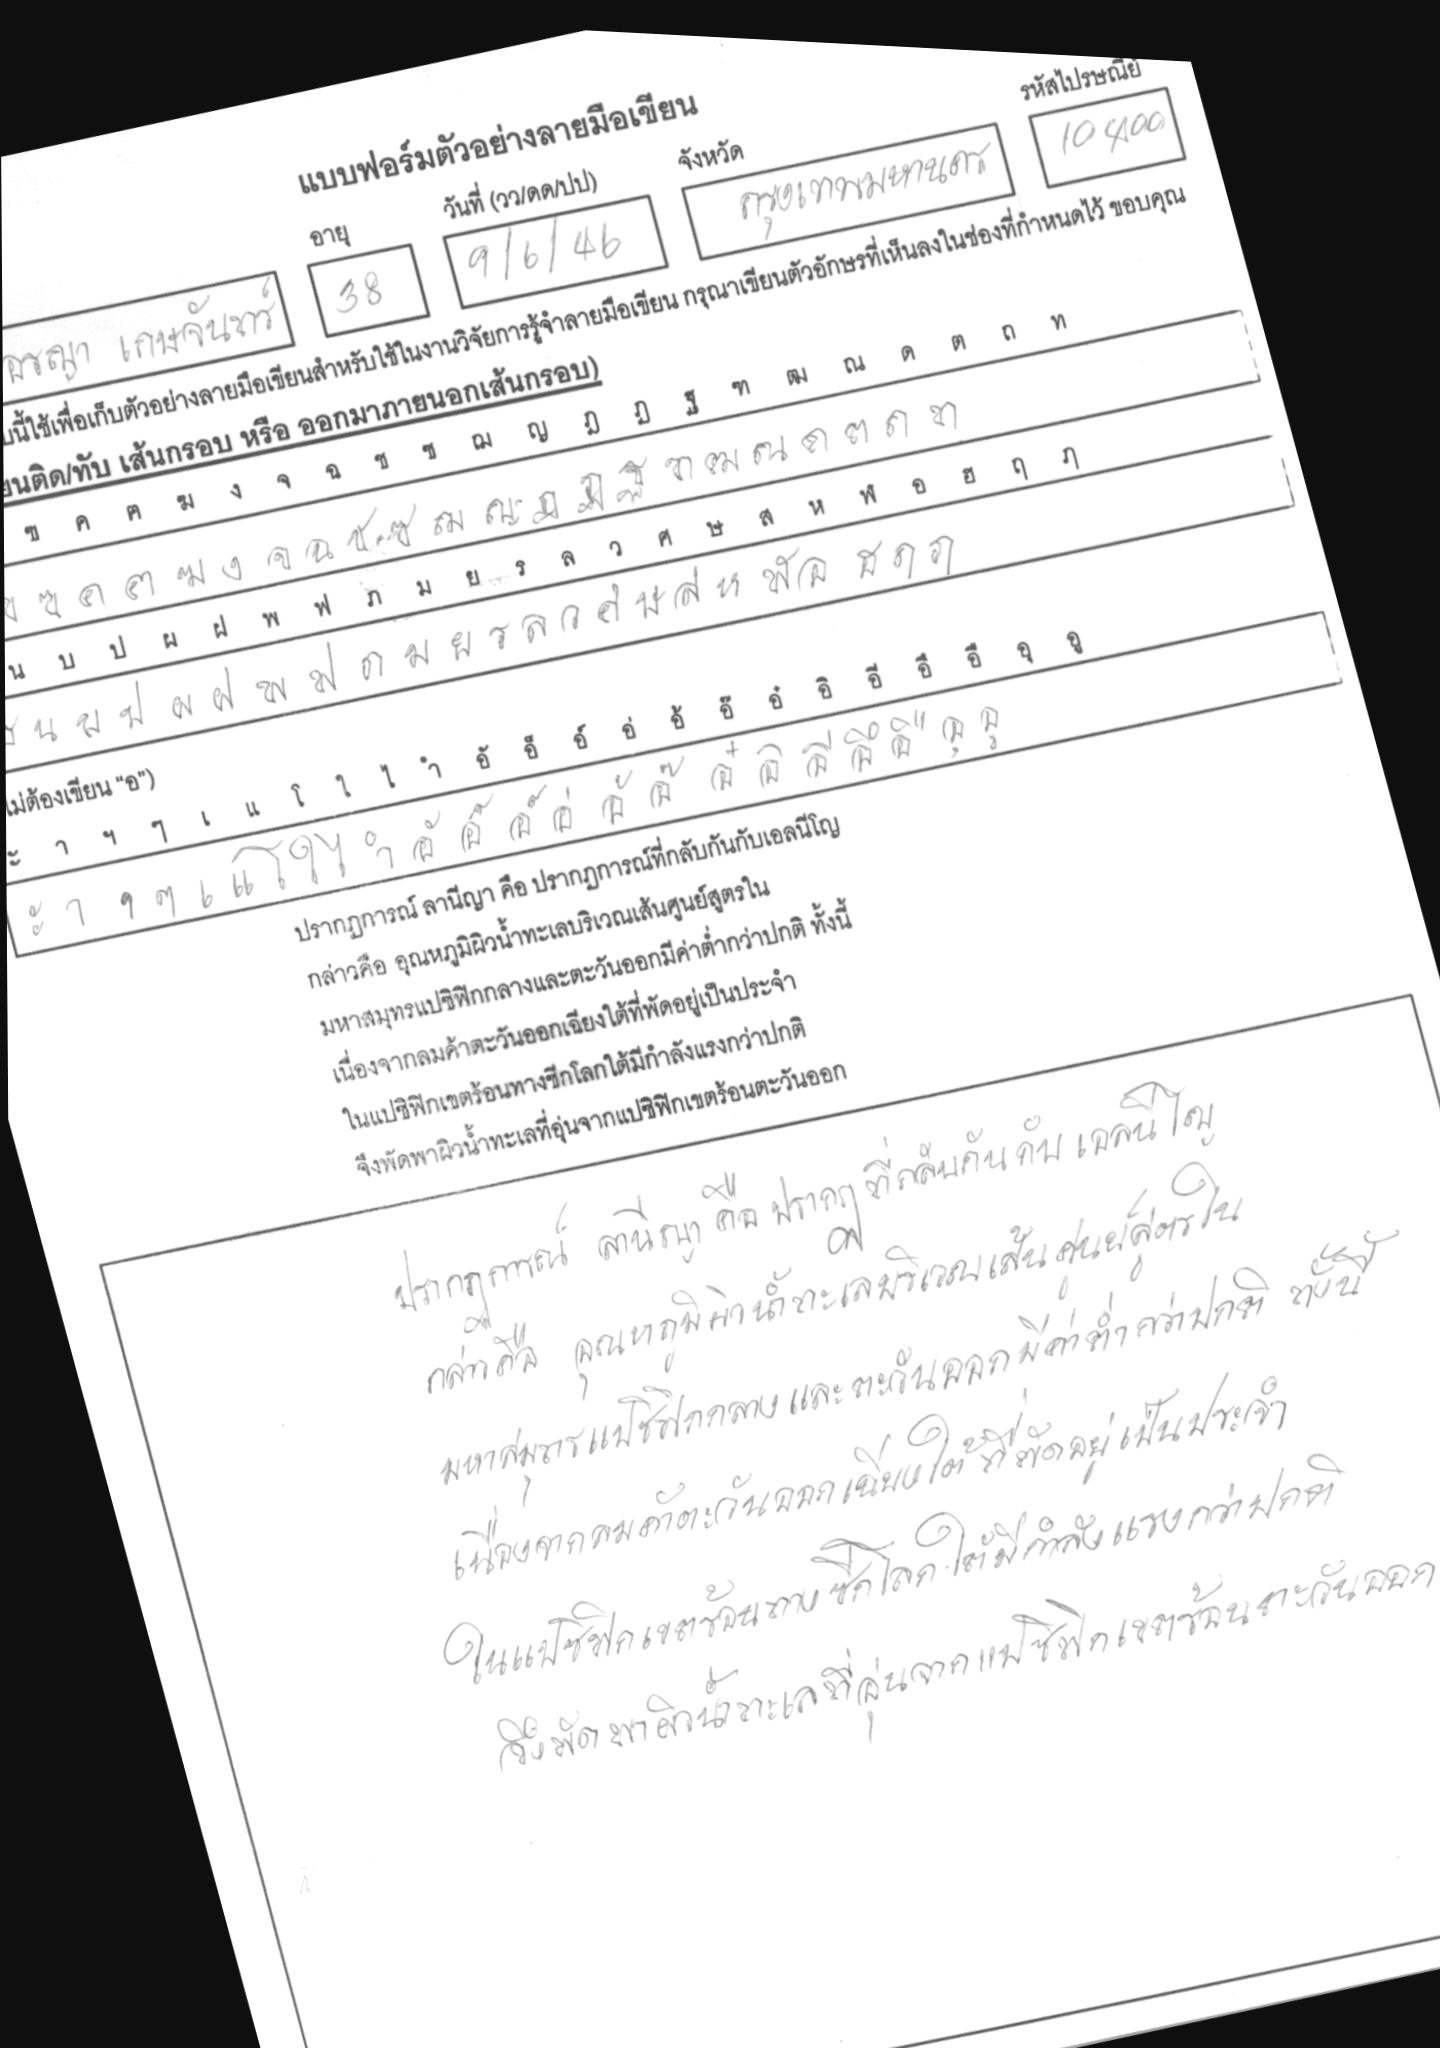 แบบฟอร์มตัวอย่างลายมือเขียน
อายุ วันที่ (วว/ดด/ปป) จังหวัด รหัสไปรษณีย์
อรญา เกษจันทร์ 38 9/6/46 กรุงเทพมหานคร 10400
บนี้ใช้เพื่อเก็บตัวอย่างลายมือเขียนสำหรับใช้ในงานวิจัยการรู้จำลายมือเขียน กรุณาเขียนตัวอักษรที่เห็นลงในช่องที่กำหนดไว้ ขอบคุณ
ยนติด/ทับ เส้นกรอบ หรือ ออกมาภายนอกเส้นกรอบ)
ฃ ค ฅ ฆ ง จ ฉ ช ซ ฌ ญ ฎ ฏ ฐ ฑ ฒ ณ ด ต ถ ท
ข ฃ ค ฅ ฆ ง จ ฉ ช ซ ฌ ญ ฎ ฏ ฐ ฑ ฒ ณ ด ต ถ ท
น บ ป ผ ฝ พ ฟ ภ ม ย ร ล ว ศ ษ ส ห ฬ อ ฮ ฤ ฦ
ธ น บ ป ผ ฝ พ ฟ ภ ม ย ร ล ว ศ ษ ส ห ฬ อ ฮ ฤ ฦ
ไม่ต้องเขียน “อ”)
ะ า ฯ ๆ เ แ โ ใ ไ ำ อั อ็ อ์ อ่ อ้ อ๊ อ๋ อิ อี อึ อื อุ อู
ะ า ฯ ๆ เ แ โ ใ ไ ำ อั อ็ อ์ อ่ อ้ อ๊ อ๋ อิ อี อึ อื อุ อู
ปรากฏการณ์ ลานีญา คือ ปรากฏการณ์ที่กลับกันกับเอลนีโญ
กล่าวคือ อุณหภูมิผิวน้ำทะเลบริเวณเส้นศูนย์สูตรใน
มหาสมุทรแปซิฟิกกลางและตะวันออกมีค่าต่ำกว่าปกติ ทั้งนี้
เนื่องจากลมค้าตะวันออกเฉียงใต้ที่พัดอยู่เป็นประจำ
ในแปซิฟิกเขตร้อนทางซีกโลกใต้มีกำลังแรงกว่าปกติ
จึงพัดพาผิวน้ำทะเลที่อุ่นจากแปซิฟิกเขตร้อนตะวันออก
ปรากฏการณ์ ลานีญา คือ ปรากฏ ที่กลับกัน กับ เอลนีโญ
กล่าวคือ อุณหภูมิผิวน้ำทะเลบริเวณเส้นศูนย์สูตรใน
มหาสมุทรแปซิฟิกกลาง และ ตะวันออกมีค่าต่ำกว่าปกติ ทั้งนี้
เนื่องจากลมค้าตะวันออกเฉียงใต้ ที่พัดอยู่เป็นประจำ
ในแปซิฟิกเขตร้อนทางซีกโลกใต้มีกำลังแรงกว่าปกติ
จึงพัดพาผิวน้ำทะเลที่อุ่นจากแปซิฟิกเขตร้อนตะวันออก